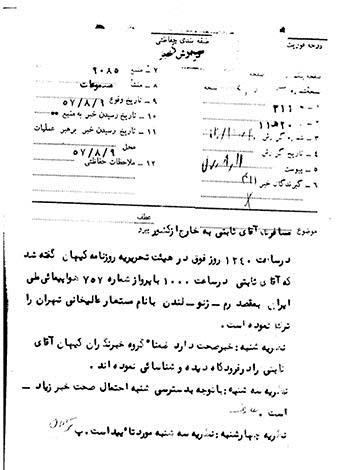 درجه فوریت
طبقه بندی حفاظتی
گزارش خبر
۷ ـ منبع ۹۰۸۵
۸ ـ منشأ مسموعات
۹ ـ تاریخ وقوع ۵۷/۸/۹
۱۰ ـ تاریخ رسیدن خبر به منبع ۰۰
۱۱ ـ تاریخ رسیدن خبر برهبر عملیات
محل ۵۷/۸/۹
۱۲ ـ ملاحظات حفاظتی
۲۱۱
۲۰هـ۱۱
۳ ـ شماره گزارش
۴ ـ تاریخ گزارش
۵ ـ پیوست
۶ ـ گیرندگان خبر ۳۱۱
عطف
موضوع مسافرت آقای ثابتی به خارج از کشور پیرو
در ساعت ۱۲۴۰ روز فوق در هیئت تحریریه روزنامه کیهان گفته شد
که آقای ثابتی در ساعت ۱۰۰۰ با پرواز شماره ۷۵۷ هواپیمائی ملی
ایران بمقصد رم ـ ژنو ـ لندن با نام مستعار عالیخانی تهران را
ترک نموده است.
نظریه شنبه: خبر صحت دارد ضمنا" گروه خبرنگاران کیهان آقای
ثابتی را در فرودگاه دیده و شناسائی نموده اند.
نظریه سه شنبه: با توجه بدسترسی شنبه احتمال صحت خبر زیاد
است.
نظریه چهارشنبه: نظریه سه شنبه مورد تائید است. پ